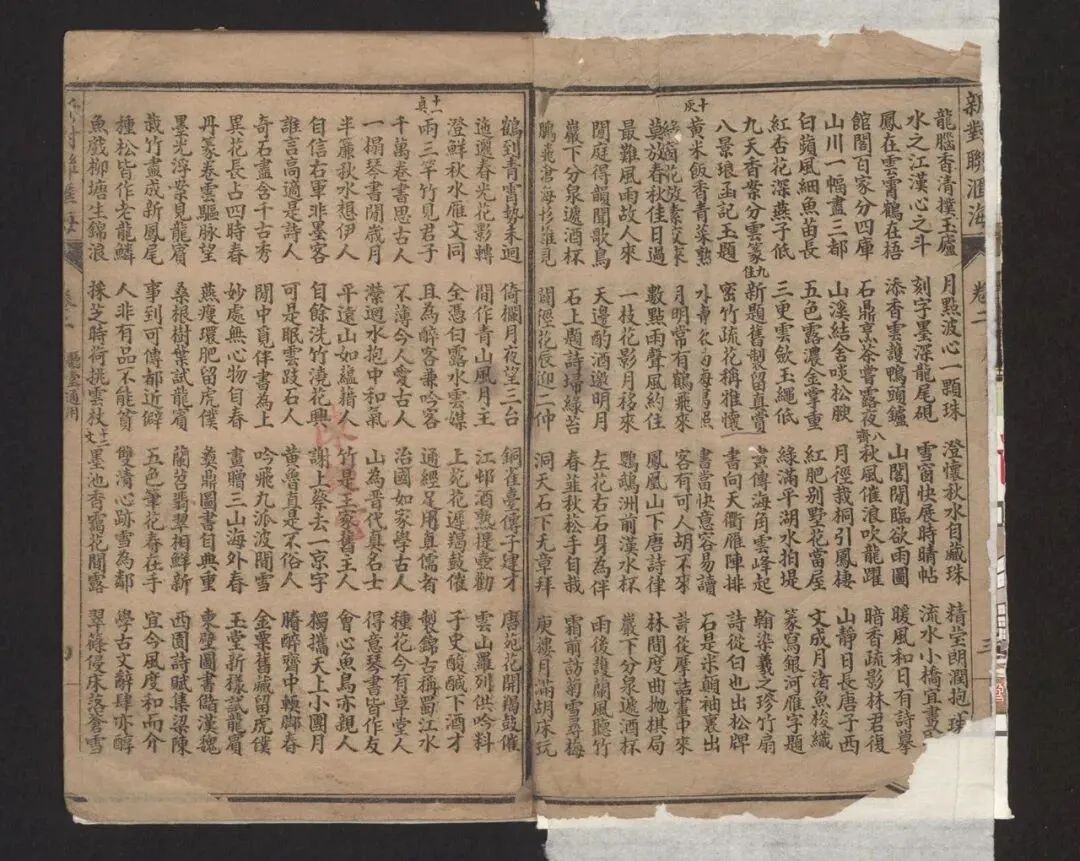 新對聯滙海 卷二 三
龍腦香清撲玉廬 月點波心一顆珠 澄懷秋水自藏珠 精瑩朗潤抱珠
水之江漢心之斗 刻字墨深龍尾硯 雪窗快展時睛帖 流水小橋宜畫
鳳在雲霄鶴在梧 添香雲護鴨頭鑪 山閣閒臨欲雨圖 暖風和日有詩摹
館閣百家分四庫 石鼎烹茶嘗露夜 八齊 秋風催浪吹龍躍 暗香疏影林君復
山川一幅畫三都 山溪結舍啖松腴 月徑栽桐引鳳棲 山靜日長唐子西
白蘋風細魚苗長 五色露濃金掌重 紅肥别墅花當屋 文成月渚魚梭織
紅杏花深燕子低 三更雲斂玉繩低 綠滿平湖水拍堤 篆寫銀河雁字題
九天香案分雲篆 九佳 新題舊製留真賞 傳海角雲峰起 翰染羲之珍竹扇
八景琅函記玉題 密竹疏花稱雅懷 書向天衢雁陣排 詩從白也出松牌
十灰 黃米飯香青菜熟 書當快意容易讀 石是米顛袖裏出
綠窗花放
莫放春秋佳日過 月明常有鶴飛來 客有可人胡不來 詩從摩詰畫中來
最難風雨故人來 數點雨聲風約住 鳳凰山下唐詩律 林間度曲拋棋局
閒庭得韻聞歌鳥 一枝花影月移來 鸚鵡洲前漢水杯 巖下分泉遞酒杯
巖下分泉遞酒杯 天邊酌酒邀明月 左花右石身為伴 雨後護蘭風聽竹
石上題詩埽綠苔 春韮秋松手自栽 霜前訪菊雪尋梅
閒徑花辰迎二仲 洞天石下无章拜 庾樓月滿胡床玩
鶴到青霄勢未迴 倚欄月夜望三台 銅雀臺傳子建才 唐苑花開羯鼓催
十一真 迤邐春光花影轉 間作青山風月主 江邨酒熟提壺勸 雲山羅列供吟料
澄鮮秋水雁文同 全憑白露水雲媒 上苑花遲羯鼓催 子史酸鹹下酒才
雨三竿竹見君子 且為醉客兼吟客 通經足用真儒者 製錦古稱蜀江水
千萬卷書思古人 不薄今人愛古人 治國如家學古人 種花今有草堂人
一榻琴書閒歲月 瀠迴水抱中和氣 山為晋代真名士 得意琴書皆作友
半簾秋水想伊人 平遠山如蘊藉人 竹是王家舊主人 會心魚鳥亦親人
自信右軍非墨客 自餘洗竹澆花興 謝上蔡去一京字 獨攜天上小團月
誰言高適是詩人 可是眠雲跂石人 黃魯直是不俗人 勝醉齊中頓腳春
奇石盡含千古秀 閒中覓伴書為上 吟飛九派波間雪 金粟舊藏留虎僕
異花長占四時春 妙處無心物自春 畫贈三山海外春 玉堂新樣試龍賓
丹篆卷雲驅脉望 燕瘦環肥留虎僕 彝鼎圖書自典重 東壁圖書儲漢魏
墨光浮案見龍賓 桑根樹葉試龍賓 蘭苕翡翠相鮮新 西園詩賦集梁陳
栽竹盡成新鳳尾 事到可傳都近癖 五色筆花春在手 宜今風度和而介
種松皆作老龍鱗 人非有品不能貧 雙清心跡雪為鄰 學古文辭肆亦醇
魚戲柳塘生錦浪 採芝時荷挑雲杖 十二文 墨池香靄花間露 翠篠侵床落蒼雪
通用